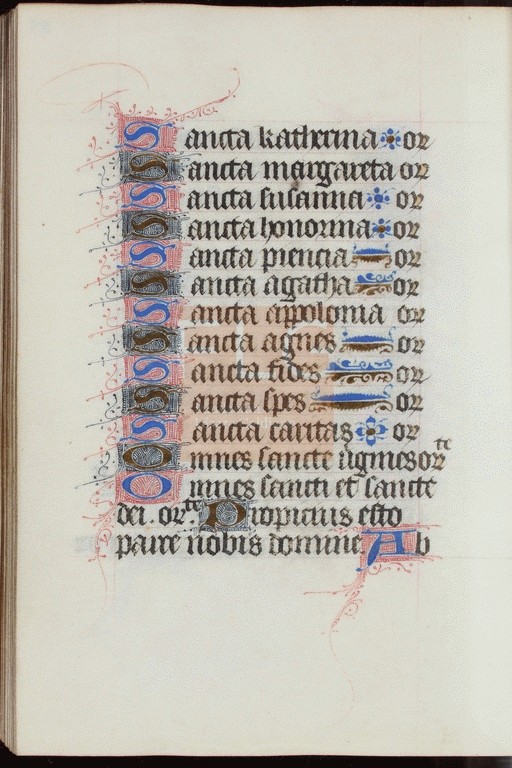 Sancta katherina or
Sancta margareta or
Sancta susanna or
Sancta honorina or
Sancta piencia or
Sancta agatha or
Sancta appolonia or
Sancta agnes or
Sancta fides or
Sancta spes or
Sancta caritas or
Omnes sancte virgines or te
Omnes sancti et sancte
dei. or te. Propicius esto
parce nobis domine Ab